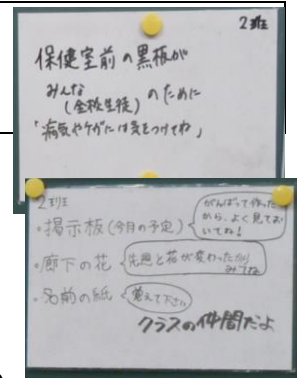 2班
保健室前の黒板が
みんな
(全校生徒) のために
「病気やケガには気をつけてね」
2班
・掲示板(今月の予定)
がんばって作った
から、よく見てお
いてね!
・廊下の花
先週と花が変わったから
みてね
・名前の紙
覚えて下さい
クラスの仲間だよ